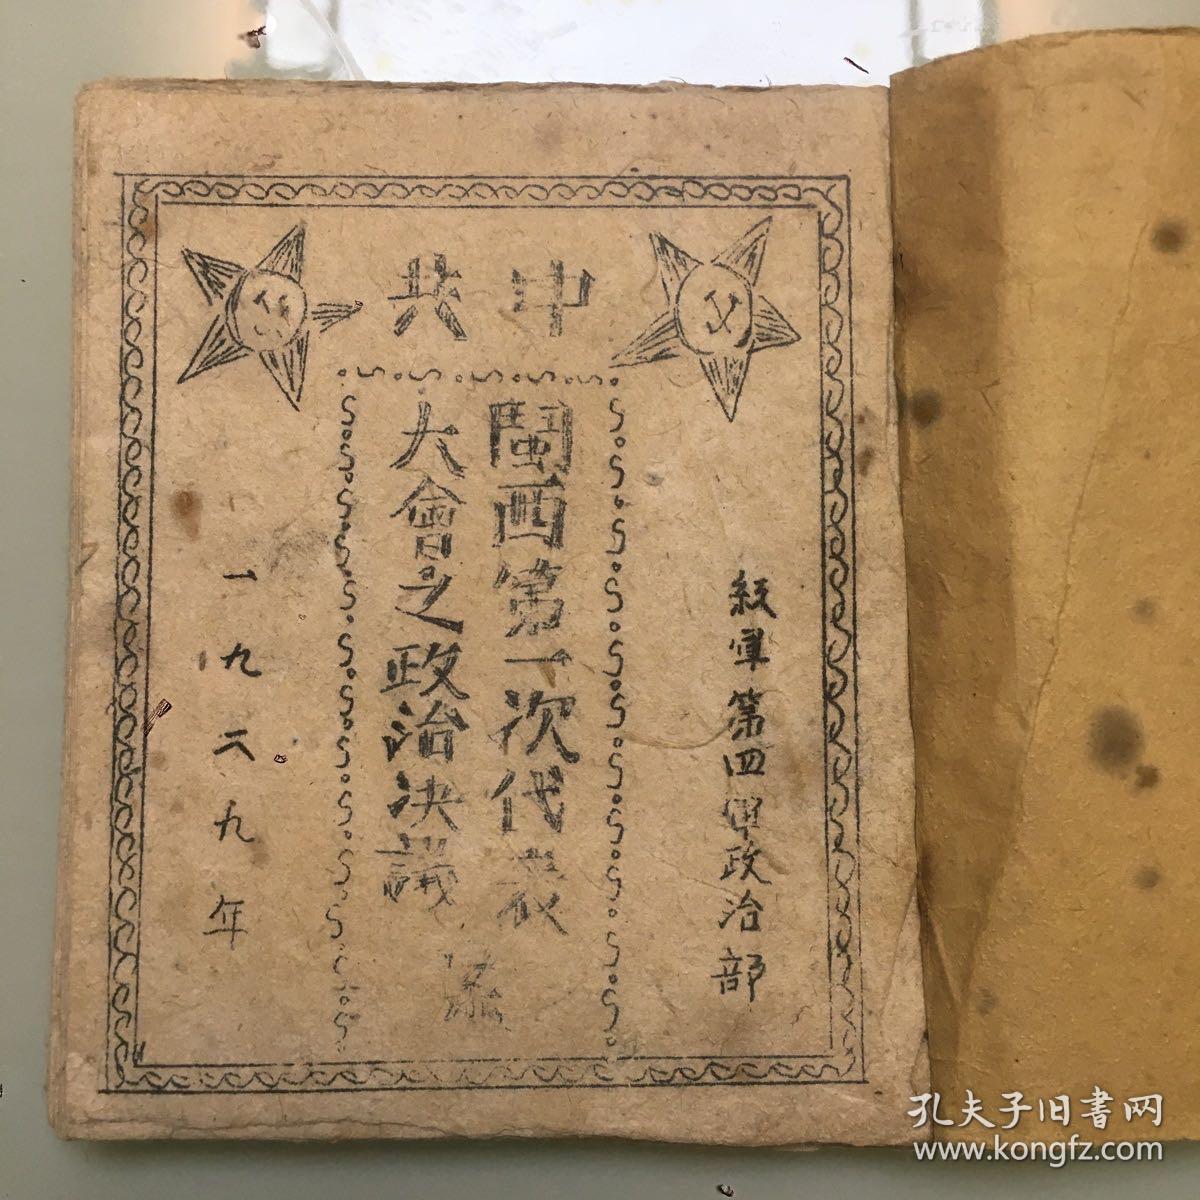 中共
閩西第一次代表
大會之政治決議
紅軍第四軍政治部
一九二九年
孔夫子旧書网
www.kongfz.com